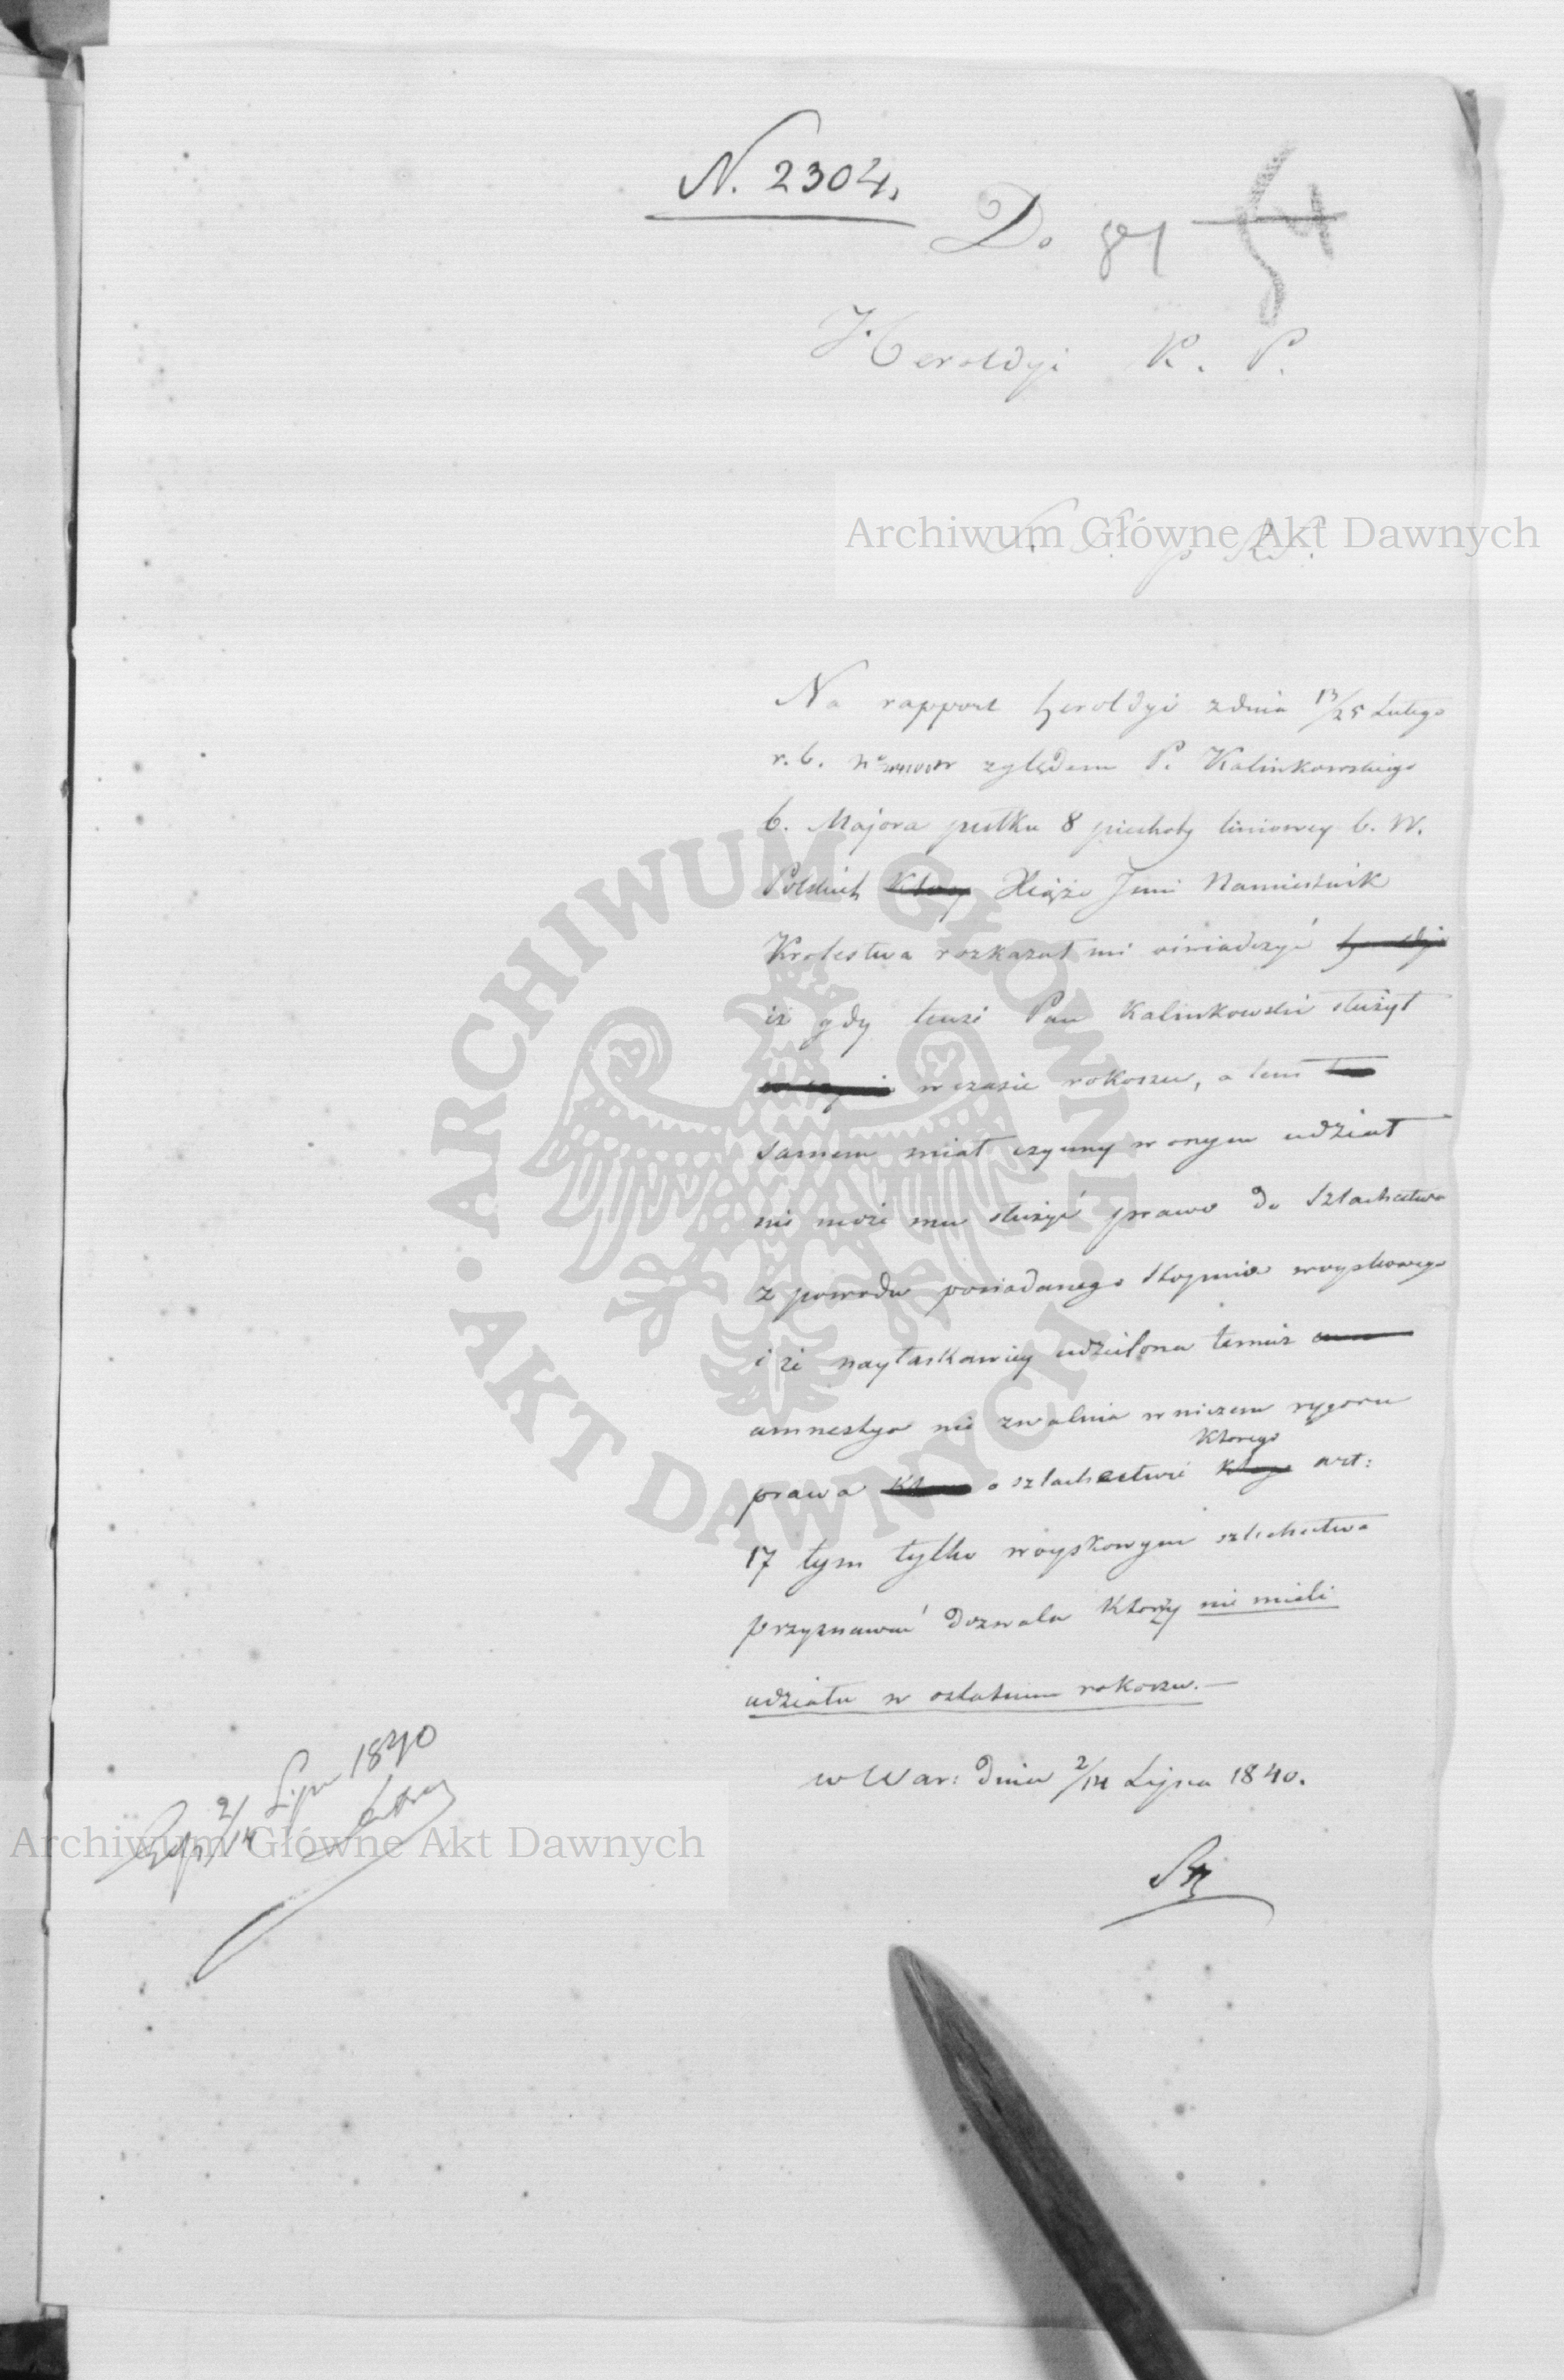 N. 2304.
Do 81 54
Heroldyi K. P.
Archiwum Główne Akt Dawnych
Na rapport Heroldyi z dnia 13/25 Lutego
r. b. względem P. Kalinkowskiego
b. Majora pułku 8 piechoty liniowey b. W.
Polskich Xiąże Jmć Namiestnik
Krolestwa rozkazał mi oświadczyć
iż gdy tenże Pan Kalinkowski służył
w czasie rokoszu, a tem
samem miał czynny w onym udział
nie może mu służyć prawo do Szlachectwa
z powodu posiadanego stopnia woyskowego
i że nayłaskawiey udzielona temuż
amnestya nie zwalnia w niczem rygoru
którego
prawa o szlachectwie art:
17 tym tylko woyskowym szlachectwo
przyznawać dozwala którzy nie mieli
udziału w ostatnim rokoszu.—
w War: dnia 2/14 Lipca 1840.
2/14 Lipca 1840
Archiwum Główne Akt Dawnych
ARCHIWUM GŁÓWNE · AKT DAWNYCH ·